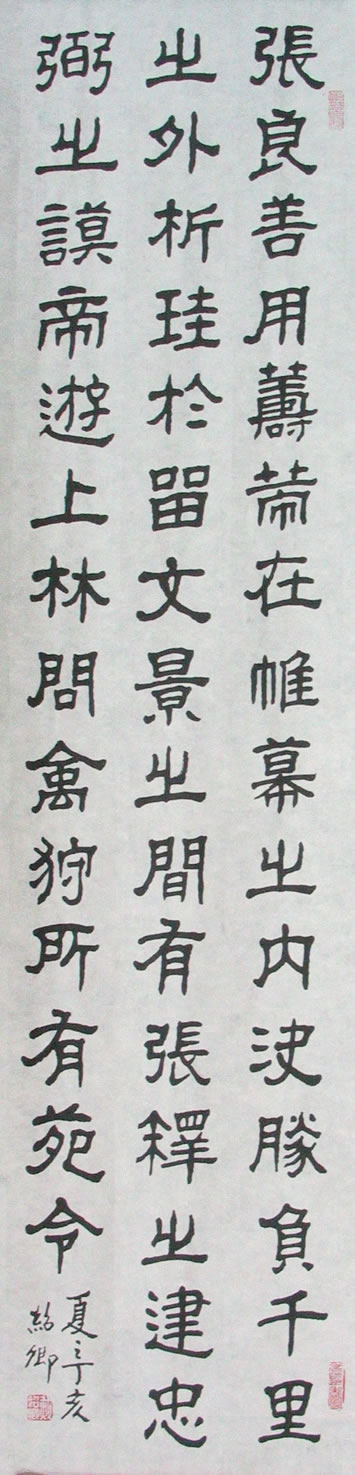 張良善用薵策在帷幕之內決勝負千里
之外析珪於留文景之間有張釋之建忠
弼之謨帝遊上林問禽狩所有苑令
夏丁亥
卿